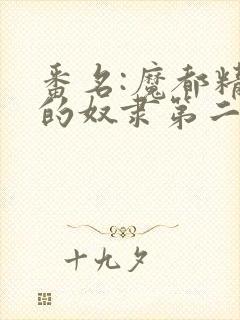 番名:魔都精
的奴隶第二
十九夕